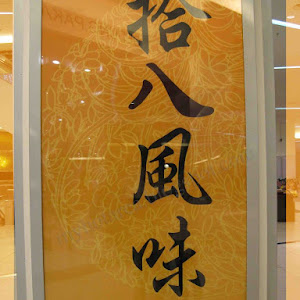 拾八風味